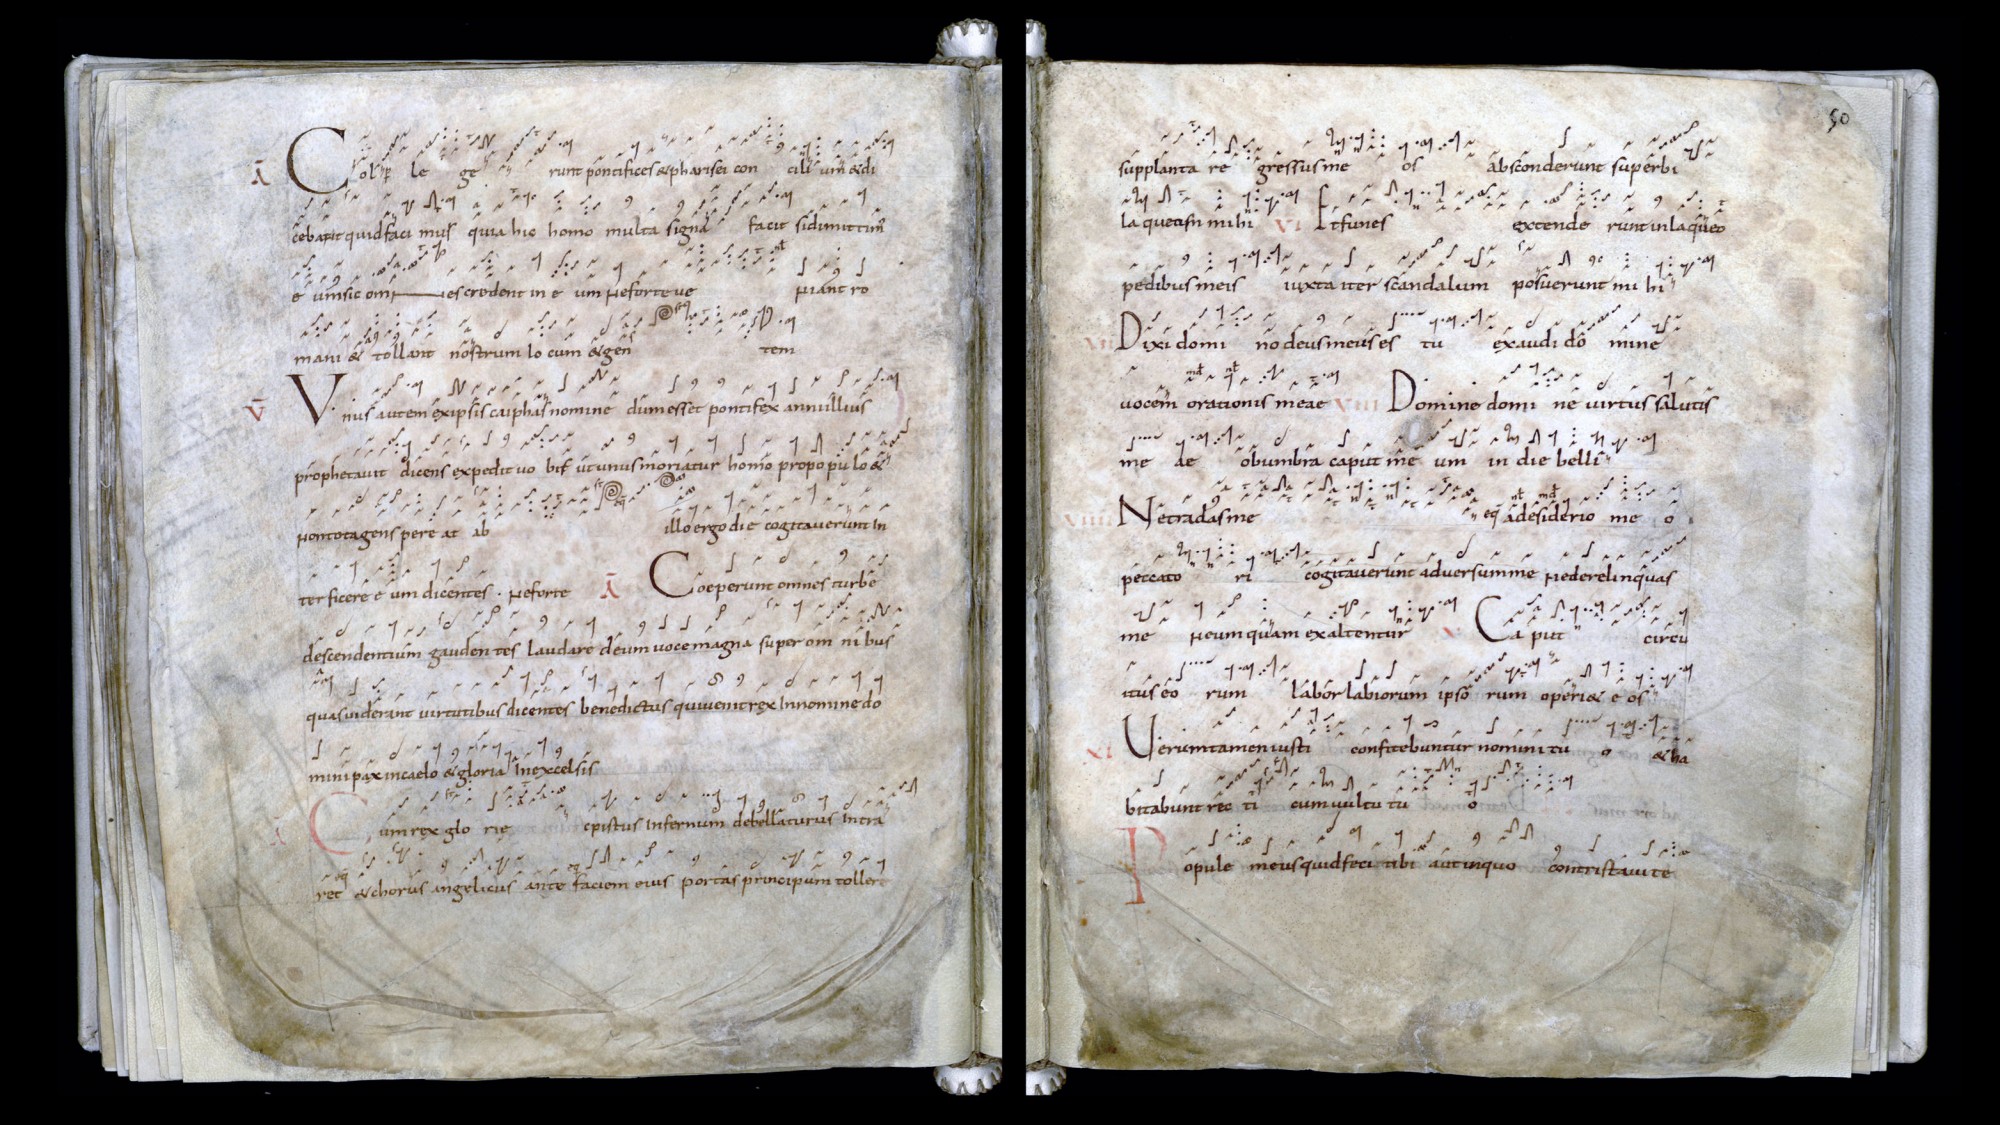 A Col le ge runt pontifices & pharisei con cili um & di
cebant quid faci mus quia hic homo multa signa facit si dimittim
e um sic om nes credent in e um ne forte ve niant ro
mani & tollant nostrum lo cum & gen tem
V Unus autem ex ipsis caiphas nomine dum esset pontifex anni illius
prophetavit dicens expedit vo bis ut unus moriatur homo pro po pu lo &
non tota gens pere at ab illo ergo die cogitaverunt in
terficere e um dicentes . ne forte A Coeperunt omnes turbe
descendentium gauden tes laudare deum voce magna super om ni bus
quas viderant virtutibus dicentes benedictus qui venit rex In nomine do
mini pax in caelo & gloria In excelsis
A Cum rex glo rie xpistus Infernum debellaturus Intra
ret & chorus angelicus ante faciem eius portas principum tolleret
50
supplanta re gressus me os absconderunt superbi
laqueum mihi VI Et funes extende runt in laqueo
pedibus meis iuxta iter scandalum posuerunt mi hi
VII Dixi domi no deus meus es tu exaudi do mine
vocem orationis meae VIII Domine domi ne virtus salutis
me ae obumbra caput me um in die belli
VIIII Ne tradas me a desiderio me o
peccato ri cogitaverunt adversum me ne derelinquas
me ne umquam exaltentur X Ca put circu
itus eo rum labor labiorum ipso rum operi& e os
XI Verumtamen iusti confitebuntur nomini tu o & ha
bitabunt rec ti cum vultu tu o
Popule meus quid feci tibi aut in quo contristavi te